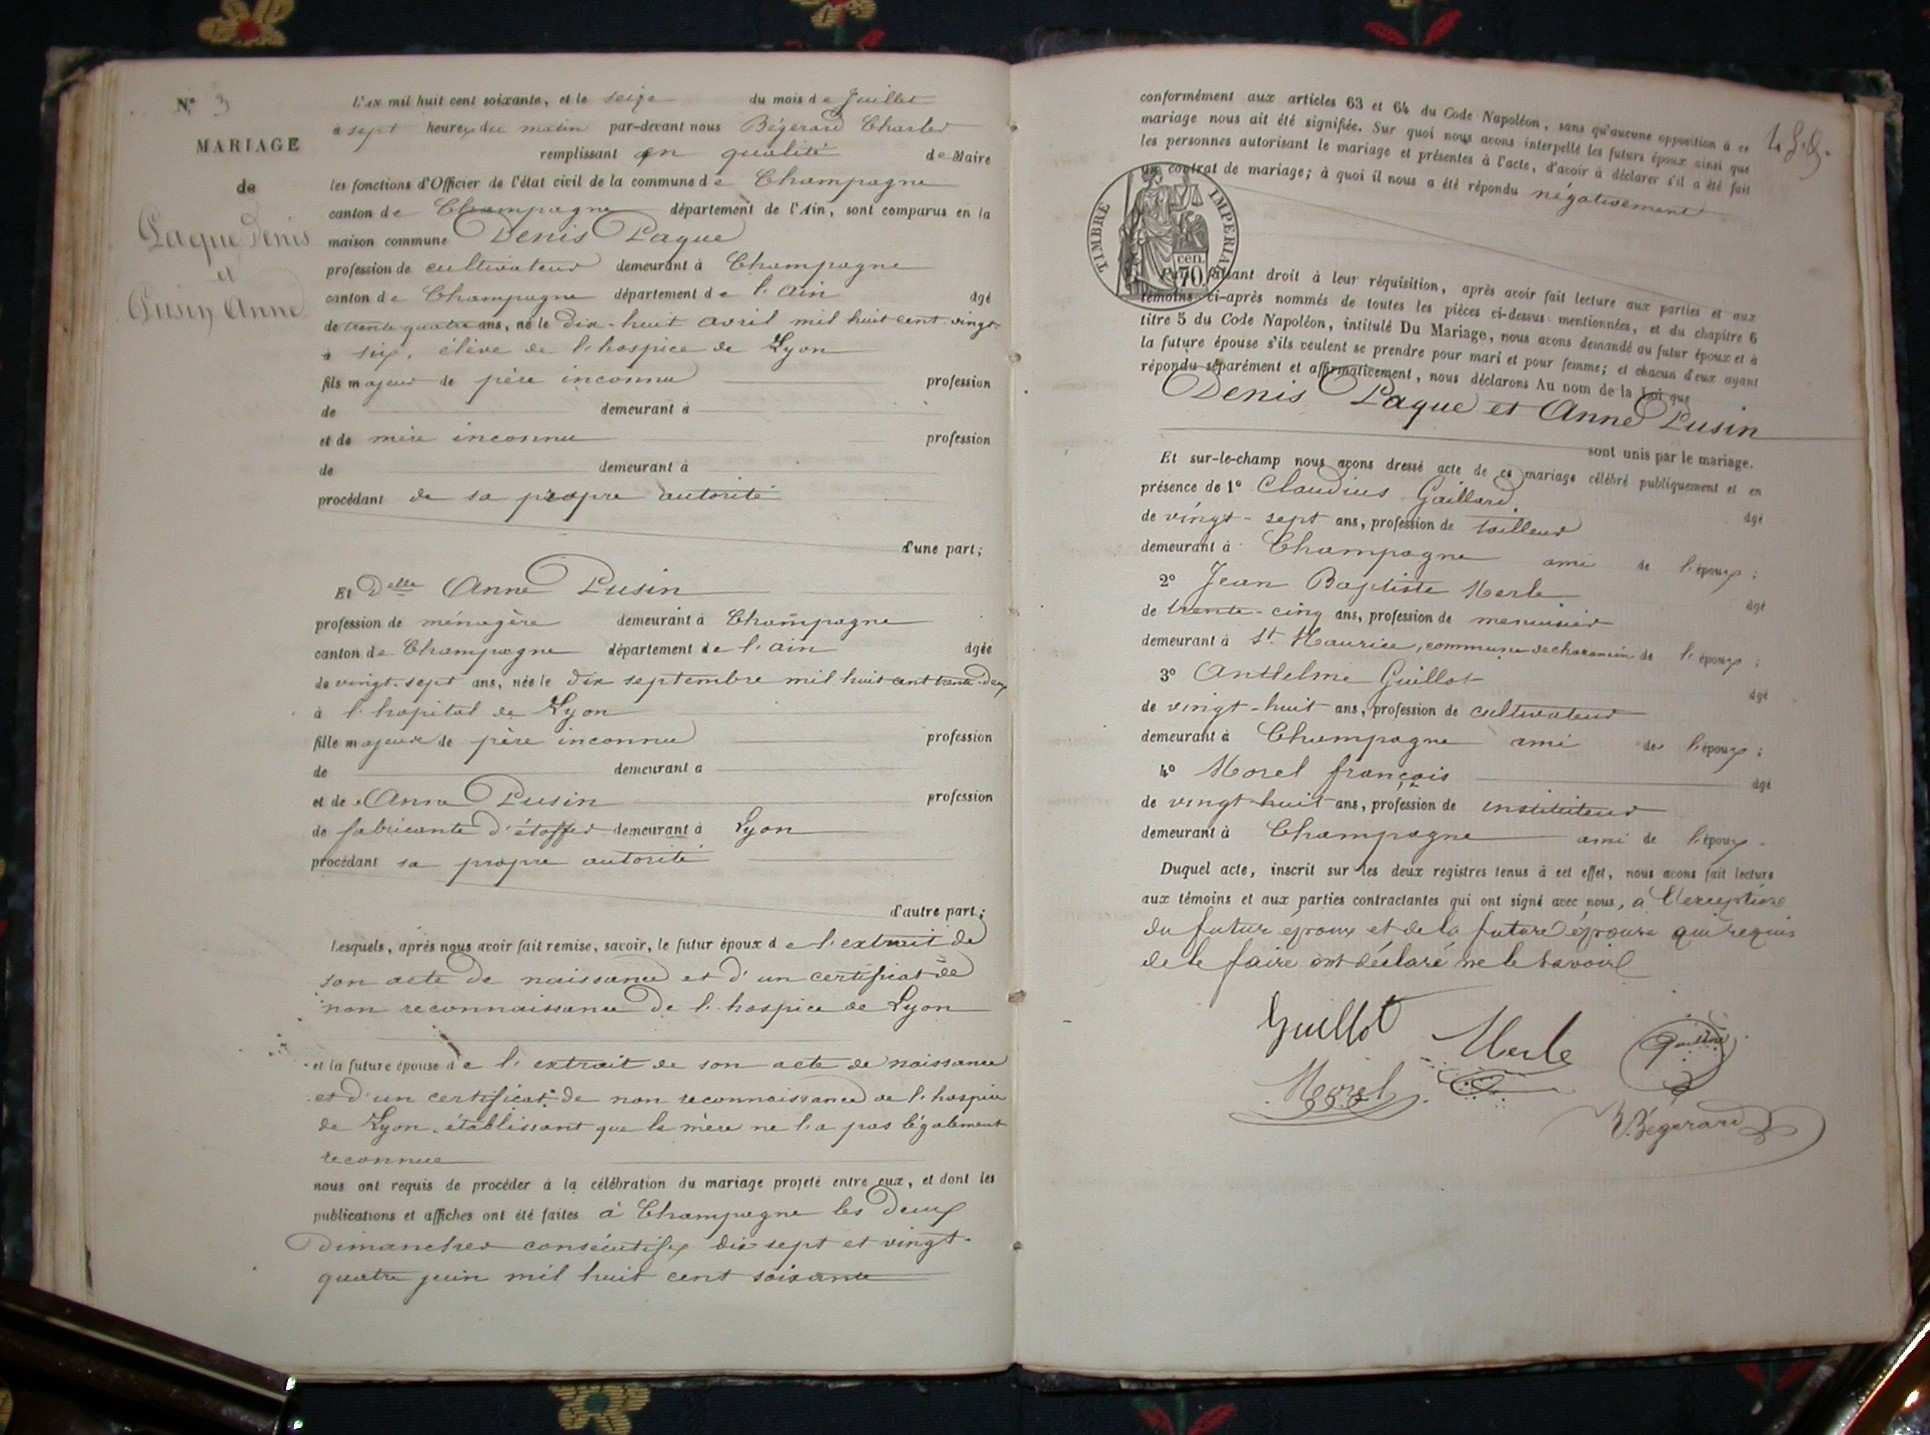 N° 3
MARIAGE
de
Paque Denis
et
Pusin Anne
L'AN mil huit cent soixante, et le seize du mois de Juillet
à sept heures du matin par-devant nous Bégerard Charles
remplissant en qualité de Maire
les fonctions d'Officier de l'état civil de la commune de Champagne
canton de Champagne département de l'Ain, sont comparus en la
maison commune Denis Paque
profession de cultivateur demeurant à Champagne
canton de Champagne département de l'ain âgé
de trente quatre ans, né le dix-huit avril mil huit cent vingt-
à six, élève de l'hospice de Lyon
fils majeur de père inconnu profession
de demeurant à
et de mère inconnue profession
de demeurant à
procédant de sa propre autorité
d'une part;
Et Delle Anne Pusin
profession de ménagère demeurant à Champagne
canton de Champagne département de l'ain âgée
de vingt-sept ans, née le dix septembre mil huit cent trente-deux
à l'hopital de Lyon
fille majeure de père inconnu profession
de demeurant à
et de Anne Pusin profession
de fabricante d'étoffes demeurant à Lyon
procédant sa propre autorité
d'autre part;
Lesquels, après nous avoir fait remise, savoir, le futur époux de l'extrait de
son acte de naissance et d'un certificat de
non reconnaissance de l'hospice de Lyon
et la future épouse de l'extrait de son acte de naissance
et d'un certificat de non reconnaissance de l'hospice
de Lyon établissant que la mère ne l'a pas légalement
reconnue
nous ont requis de procéder à la célébration du mariage projeté entre eux, et dont les
publications et affiches ont été faites à Champagne les deux
Dimanches consécutifs dix sept et vingt-
quatre juin mil huit cent soixante
conformément aux articles 63 et 64 du Code Napoléon, sans qu'aucune opposition à ce
mariage nous ait été signifiée. Sur quoi nous avons interpellé les futurs époux ainsi que
les personnes autorisant le mariage et présentes à l'acte, d'avoir à déclarer s'il a été fait
un contrat de mariage; à quoi il nous a été répondu négativement
TIMBRE IMPERIAL
cen.
70
faisant droit à leur réquisition, après avoir fait lecture aux parties et aux
témoins ci-après nommés de toutes les pièces ci-dessus mentionnées, et du chapitre 6
titre 5 du Code Napoléon, intitulé Du Mariage, nous avons demandé au futur époux et à
la future épouse s'ils veulent se prendre pour mari et pour femme; et chacun d'eux ayant
répondu séparément et affirmativement, nous déclarons Au nom de la Loi que
Denis Paque et Anne Pusin
sont unis par le mariage.
Et sur-le-champ nous avons dressé acte de ce mariage célébré publiquement et en
présence de 1° Claudius Gaillard âgé
de vingt-sept ans, profession de tailleur
demeurant à Champagne ami de l'époux;
2° Jean Baptiste Merle âgé
de trente-cinq ans, profession de menuisier
demeurant à St Maurice, commune de de l'époux;
3° Anthelme Guillot âgé
de vingt-huit ans, profession de cultivateur
demeurant à Champagne ami de l'époux;
4° Morel françois âgé
de vingt-huit ans, profession de instituteur
demeurant à Champagne ami de l'époux.
Duquel acte, inscrit sur les deux registres tenus à cet effet, nous avons fait lecture
aux témoins et aux parties contractantes qui ont signé avec nous, à l'exception
du futur époux et de la future épouse qui requis
de le faire ont déclaré ne le savoir
Guillot Merle Gaillard
Morel
Bégerard